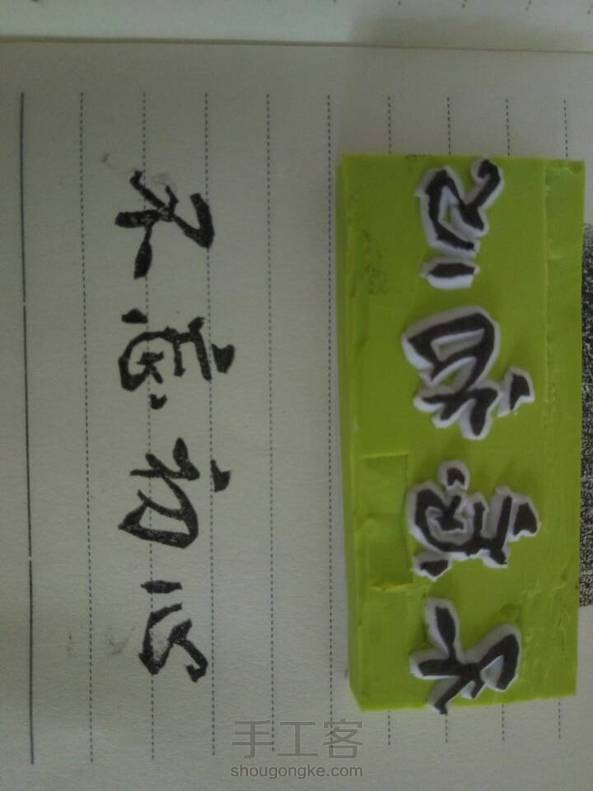 不忘初心
不忘初心
手工客
shougongke.com